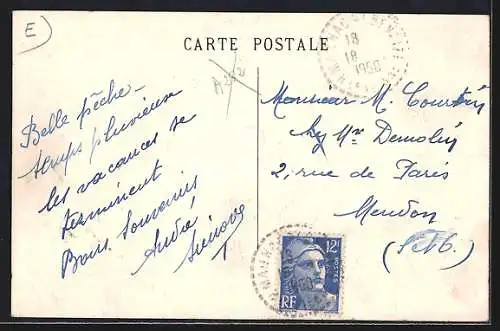 E
CARTE POSTALE
18
18
1950
Belle pêche -
temps pluvieux
les vacances se
terminent
Bons Souvenirs
André
Monsieur M. Courtin
chez Mr Demolin
2, rue de Paris
Meudon
(S et O.)
12F
POSTES
RF